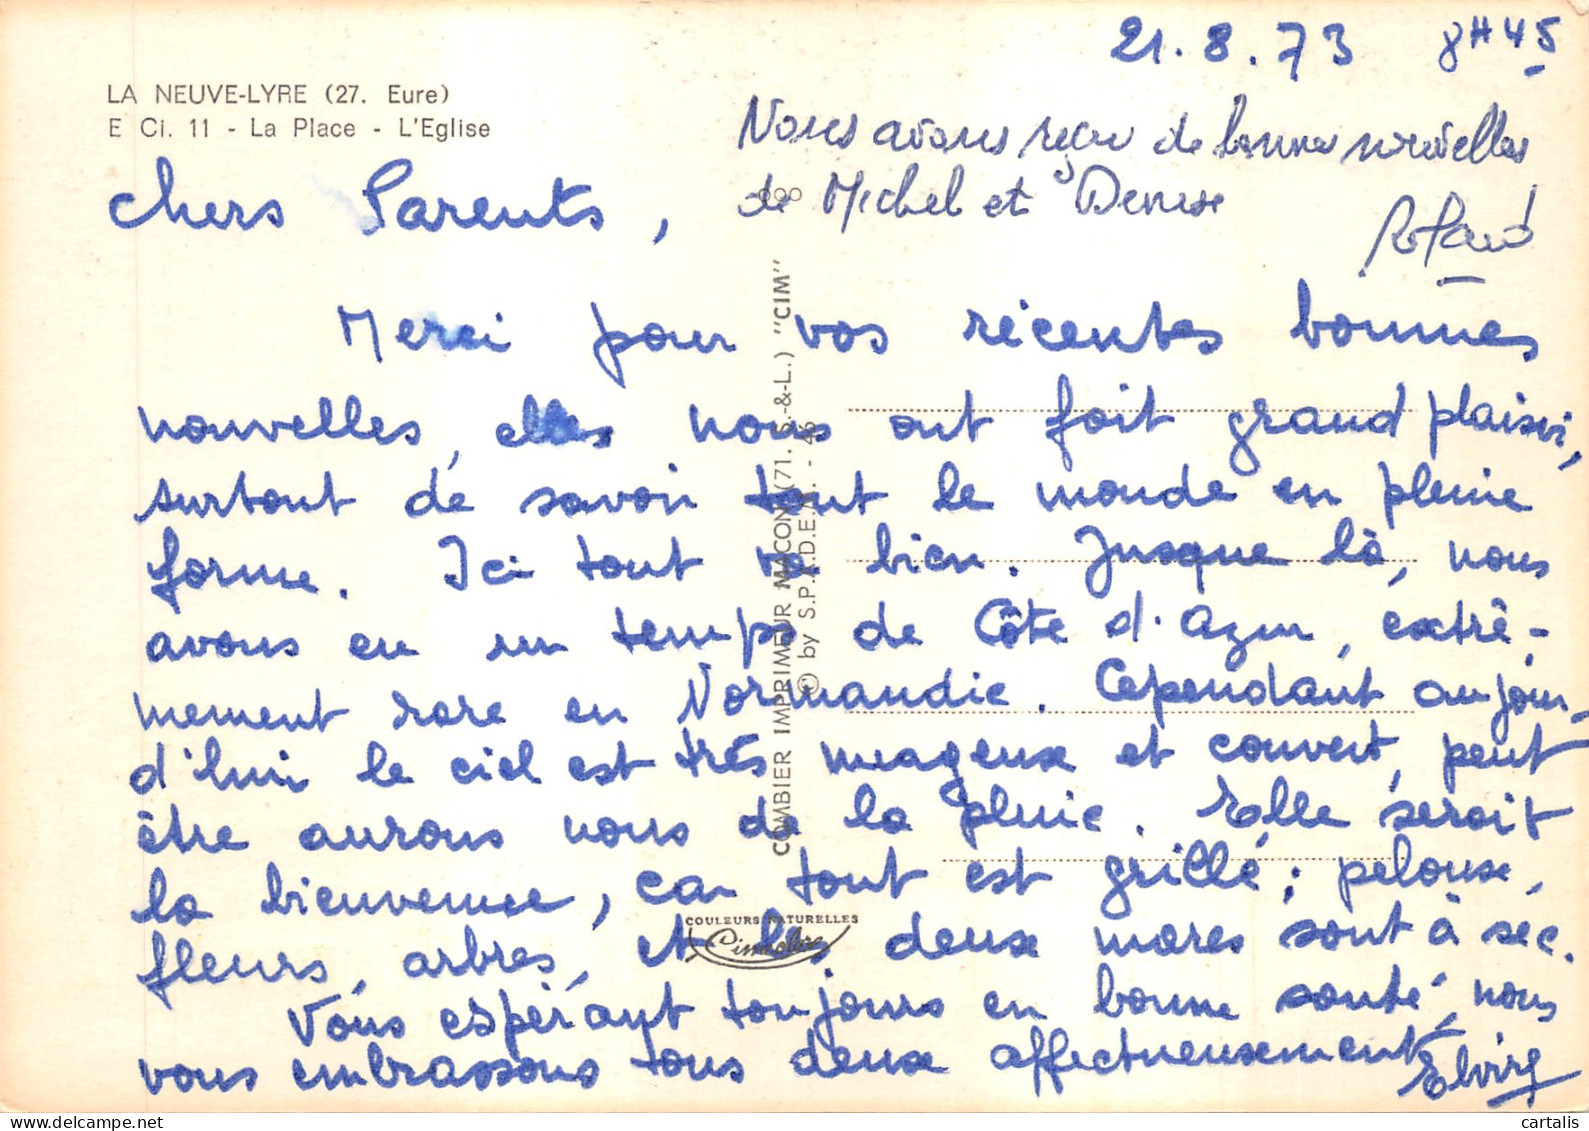 21.8.73 8H45
LA NEUVE-LYRE (27. Eure)
E Ci. 11 - La Place - L'Eglise
Nous avons reçu de bonnes nouvelles
de Michel et Denise
Roland
chers Parents,
Merci pour vos récentes bonnes
nouvelles, elles nous ont fait grand plaisir,
surtout de savoir tout le monde en pleine
forme. Ici tout va bien. Jusque là, nous
avons eu un temps de Côte d'Azur, extrê-
mement rare en Normandie. Cependant aujour-
d'hui le ciel est très nuageux et couvert, peut
être aurons nous de la pluie. Elle serait
la bienvenue, car tout est grillé; pelouse,
fleurs, arbres, et les deux mares sont à sec.
Vous espérant toujours en bonne santé, nous
vous embrassons tous deux affectueusement
Elvire
COMBIER IMPRIMEUR MACON (71. S.-&-L.) "CIM"
© by S.P.A.D.E.M. - 46
COULEURS NATURELLES
Cimcolor
cartalis